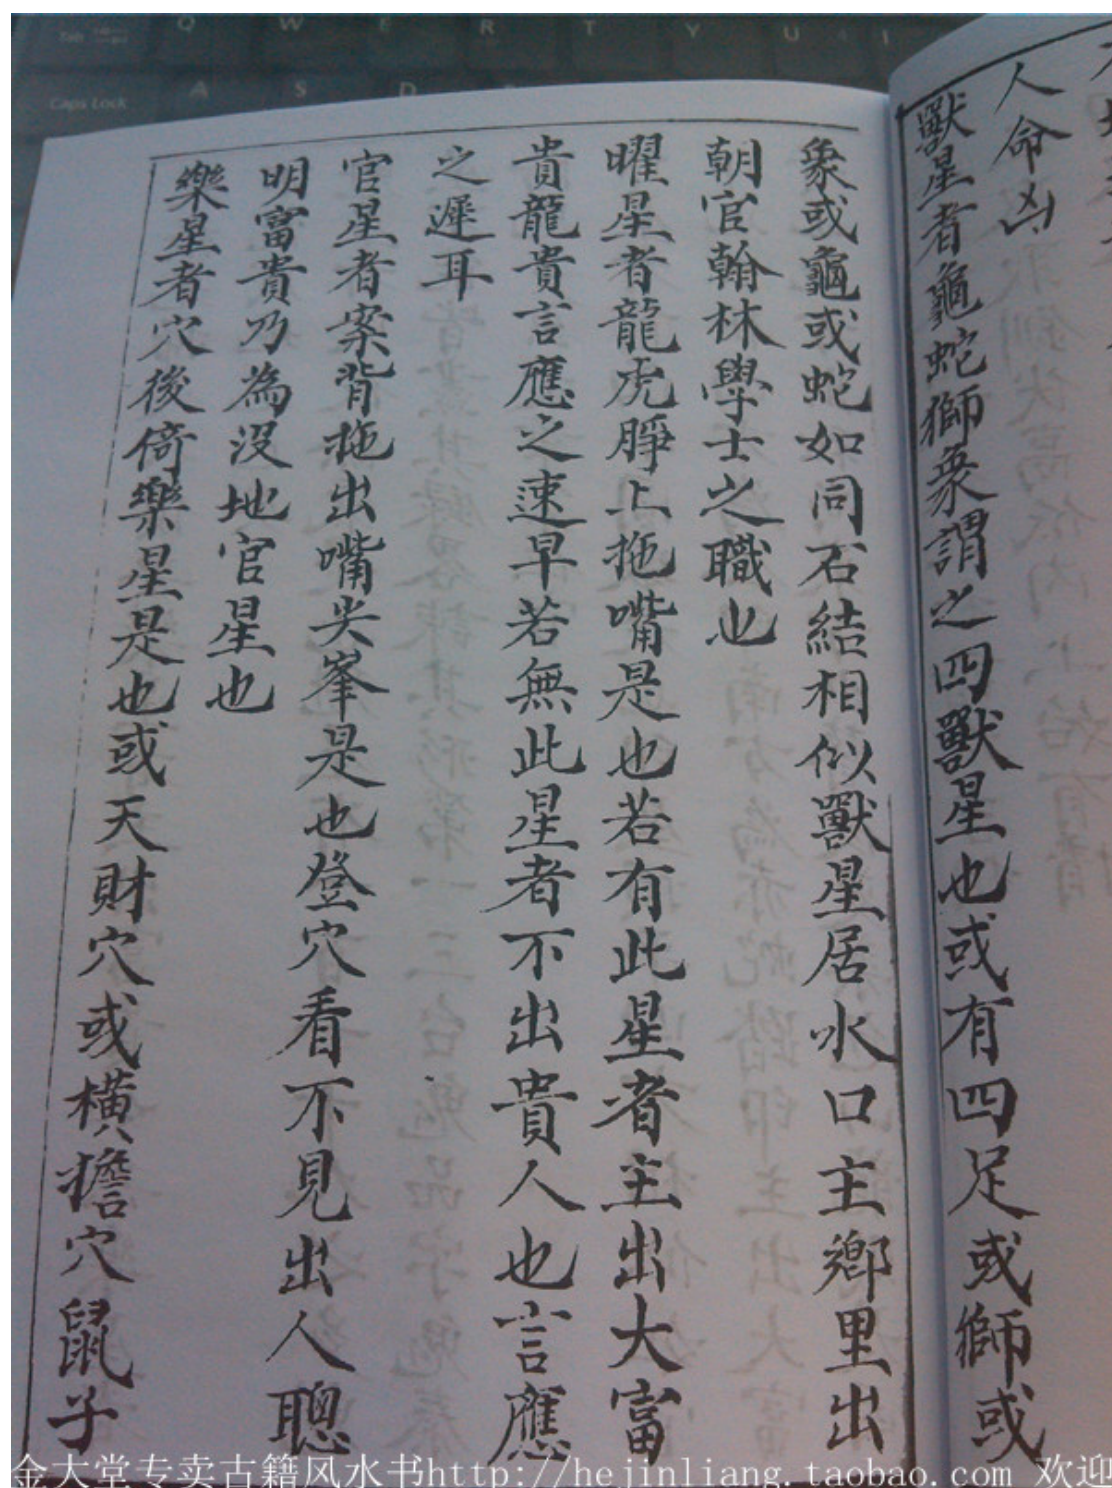 人命凶
獸星者龜蛇獅象謂之四獸星也或有四足或獅或
象或龜或蛇如同石結相似獸星居水口主鄉里出
朝官翰林學士之職也
曜星者龍虎脝上拖嘴是也若有此星者主出大富
貴龍貴言應之速早若無此星者不出貴人也言應
之遲耳
官星者案背拖出嘴尖峯是也登穴看不見出人聰
明富貴乃為沒地官星也
樂星者穴後倚樂星是也或天財穴或橫擔穴鼠子
金大堂专卖古籍风水书http://hejinliang.taobao.com 欢迎
Q W E R T Y U I
Caps Lock A S D
Tab